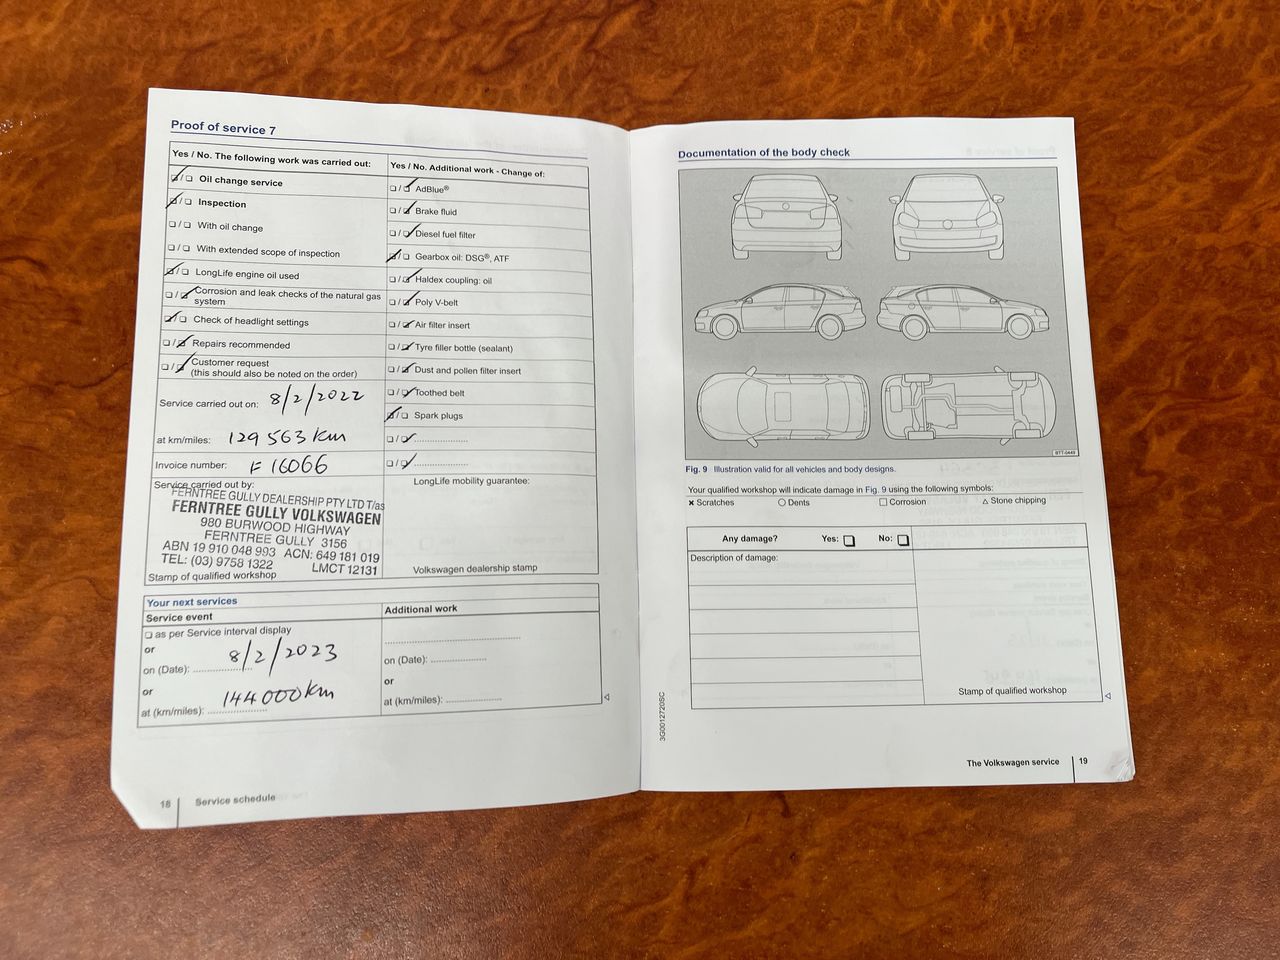 Proof of service 7
Yes / No. The following work was carried out:
Oil change service
Inspection
With oil change
With extended scope of inspection
LongLife engine oil used
Corrosion and leak checks of the natural gas
system
Check of headlight settings
Repairs recommended
Customer request
(this should also be noted on the order)
Service carried out on: 8/2/2022
at km/miles: 129 563 km
Invoice number: F 16066
Service carried out by:
FERNTREE GULLY DEALERSHIP PTY LTD T/as
FERNTREE GULLY VOLKSWAGEN
980 BURWOOD HIGHWAY
FERNTREE GULLY 3156
ABN 19 910 048 993 ACN: 649 181 019
TEL: (03) 9758 1322 LMCT 12131
Stamp of qualified workshop
Yes / No. Additional work - Change of:
AdBlue®
Brake fluid
Diesel fuel filter
Gearbox oil: DSG®, ATF
Haldex coupling: oil
Poly V-belt
Air filter insert
Tyre filler bottle (sealant)
Dust and pollen filter insert
Toothed belt
Spark plugs
LongLife mobility guarantee:
Volkswagen dealership stamp
Your next services
Service event
as per Service interval display
or
on (Date): 8/2/2023
or
at (km/miles): 144 000 km
Additional work
on (Date):
or
at (km/miles):
18 Service schedule
Documentation of the body check
BTT-0449
Fig. 9 Illustration valid for all vehicles and body designs.
Your qualified workshop will indicate damage in Fig. 9 using the following symbols:
× Scratches ○ Dents □ Corrosion △ Stone chipping
Any damage? Yes: No:
Description of damage:
Stamp of qualified workshop
3G0012720SC
The Volkswagen service 19